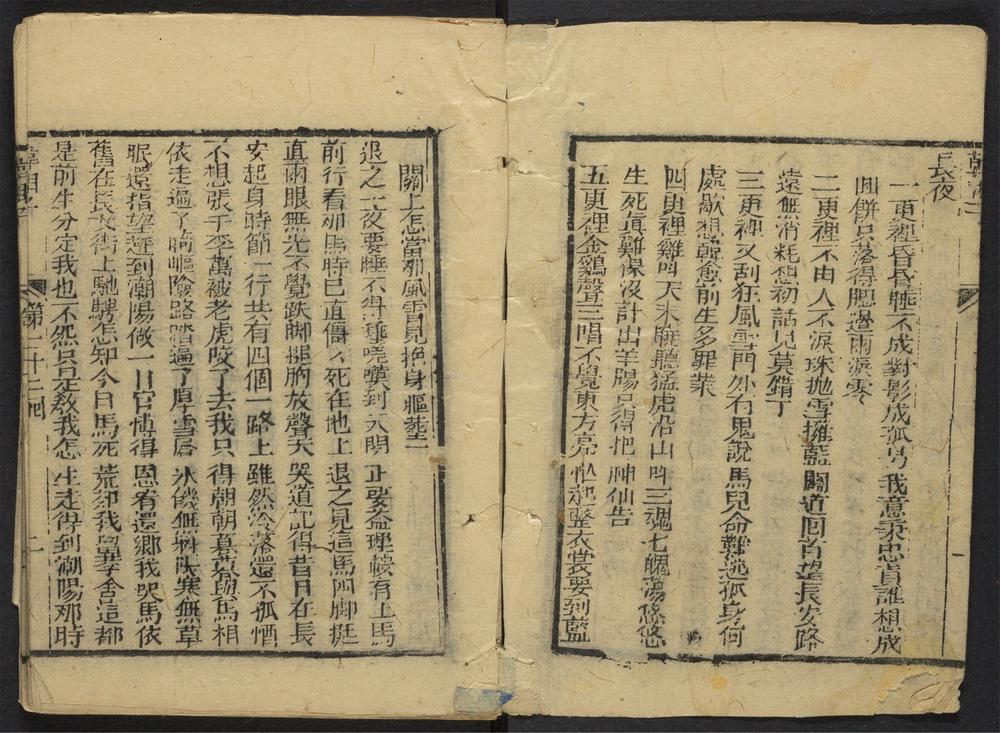 長夜
一更裡昏昏睡不成對影成孤另我意秉忠貞誰想成
画餅只落得腮邊雨淚零
二更裡不由人不淚珠拋雪擁藍關道回首望長安路
遠無消耗想初話兒莫錯了
三更裡又刮狂風雪門外有鬼說馬兒命難逃孤身何
處歇想韓愈前生多罪業
四更裡雞叫天未曉聽猛虎沿山叫三魂七魄蕩悠悠
生死真難保沒計出羊腸只得把神仙告
五更裡金鷄聲三唱不覺東方亮忙起整衣裳要到藍
關上怎當那風雪見撓身軀
退之一夜要睡不得到天明正要整理鞍有上馬
前行看那馬時已直僵僵死在地上退之見這馬四脚挺
直兩眼無光不覺跌脚搥胸放聲大哭道記得昔日在長
安起身時節一行共有四個一路上雖然冷落還不孤恓
不想張千李萬被老虎咬了去我只得朝朝暮暮與馬相
依走遍了崎嶇險路踏遍了厚雪層氷饑無料喂寒無草
眠還指望到潮陽做一日官博得恩宥還鄉我與馬依
舊在長安街上馳騁怎知今日馬死荒郊我這都
是前生分定我也不怨只是教我怎生走得到潮陽那時
第二十二回
二